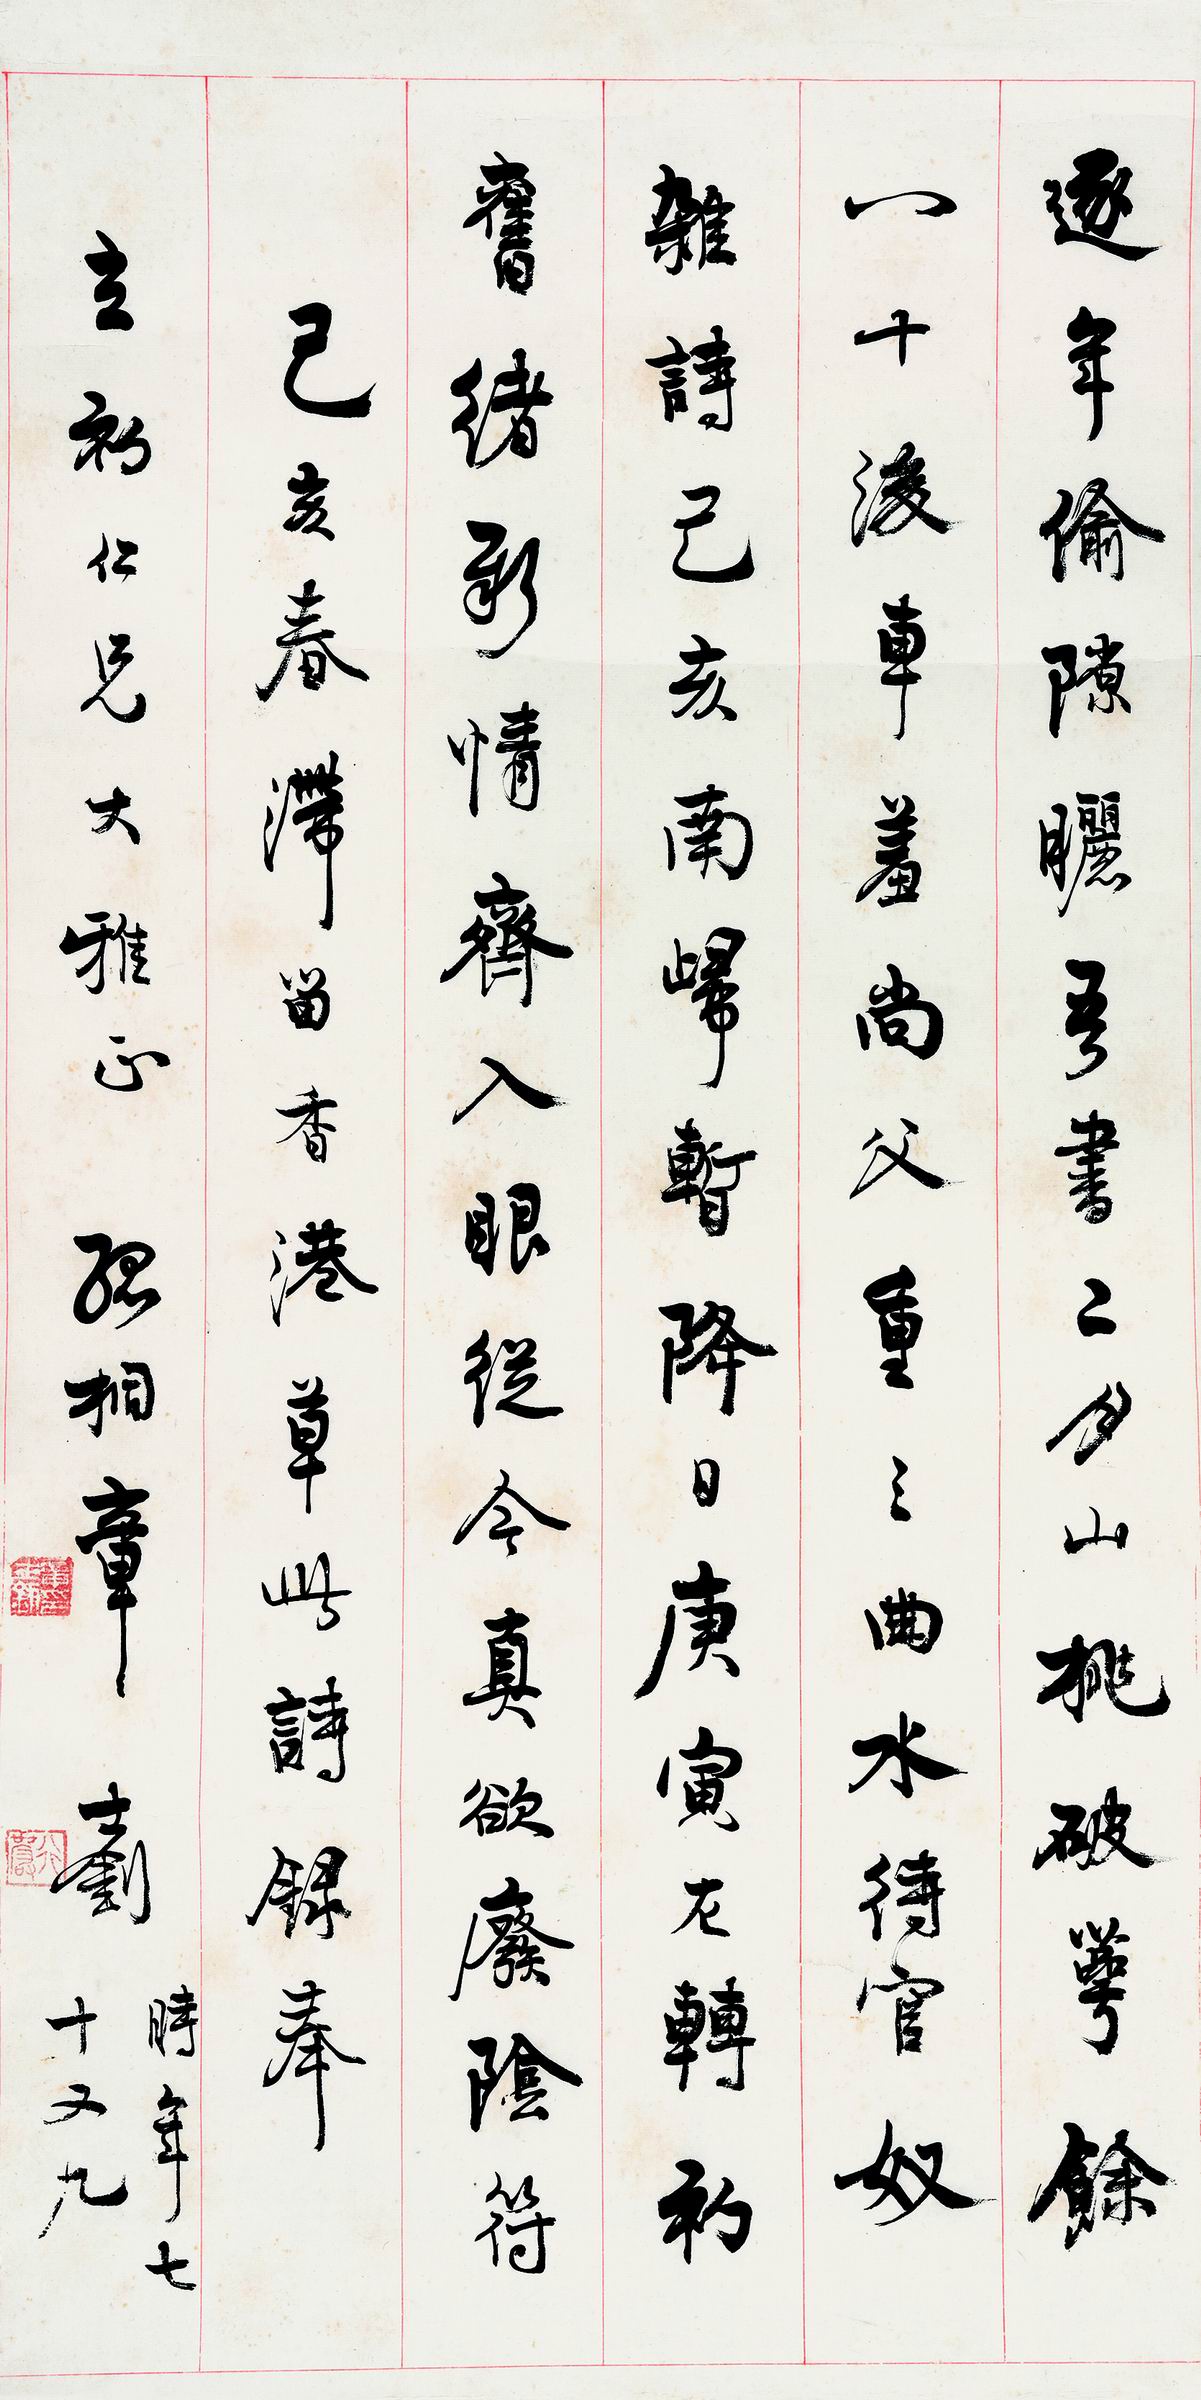 逐年偷隙曬吾書二月山桃破萼餘
八十後車羞尚父重三曲水待官奴
雜詩己亥南歸暫降日庚寅左轉初
舊緒新情齊入眼從今真欲廢陰符
己亥春滯留香港草此詩錄奉
立初仁兄大雅正 孤桐章士釗
時年七
十又九